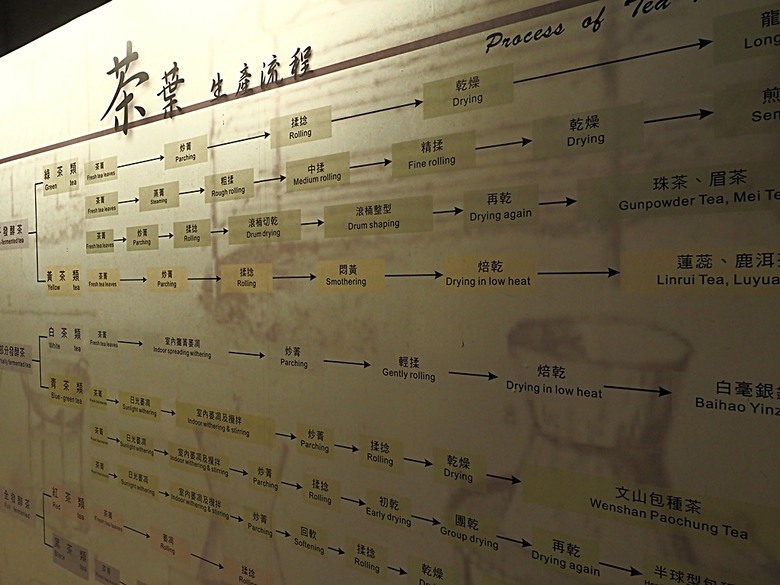 茶葉 生產流程
Process of Tea
龍
Long
綠茶類
Green tea
茶菁
Fresh tea leaves
炒菁
Parching
揉捻
Rolling
乾燥
Drying
煎
Sen
茶菁
Fresh tea leaves
蒸菁
Steaming
粗揉
Rough rolling
中揉
Medium rolling
精揉
Fine rolling
乾燥
Drying
不發酵茶
茶菁
Fresh tea leaves
炒菁
Parching
揉捻
Rolling
滾桶切乾
Drum drying
滾桶整型
Drum shaping
再乾
Drying again
珠茶、眉茶
Gunpowder Tea, Mei Te
黃茶類
Yellow tea
茶菁
Fresh tea leaves
炒菁
Parching
揉捻
Rolling
悶黃
Smothering
焙乾
Drying in low heat
蓮蕊、鹿洱
Linrui Tea, Luyua
部分發酵茶
白茶類
White tea
茶菁
Fresh tea leaves
室內攤菁萎凋
Indoor spreading withering
炒菁
Parching
輕揉
Gently rolling
焙乾
Drying in low heat
白毫銀
Baihao Yinz
青茶類
Blue-green tea
茶菁
日光萎凋
Sunlight withering
室內萎凋及攪拌
Indoor withering & stirring
炒菁
Parching
揉捻
Rolling
乾燥
Drying
文山包種茶
Wenshan Paochung Tea
茶菁
日光萎凋
Sunlight withering
室內萎凋及攪拌
Indoor withering & stirring
炒菁
Parching
揉捻
Rolling
初乾
Early drying
團乾
Group drying
再乾
Drying again
半球型包種
茶菁
日光萎凋
Sunlight withering
室內萎凋及攪拌
Indoor withering & stirring
炒菁
Parching
回軟
Softening
揉捻
Rolling
乾燥
Drying
全發酵茶
紅茶類
Red tea
茶菁
Fresh tea leaves
萎凋
Rolling
揉捻
Rolling
黑茶類